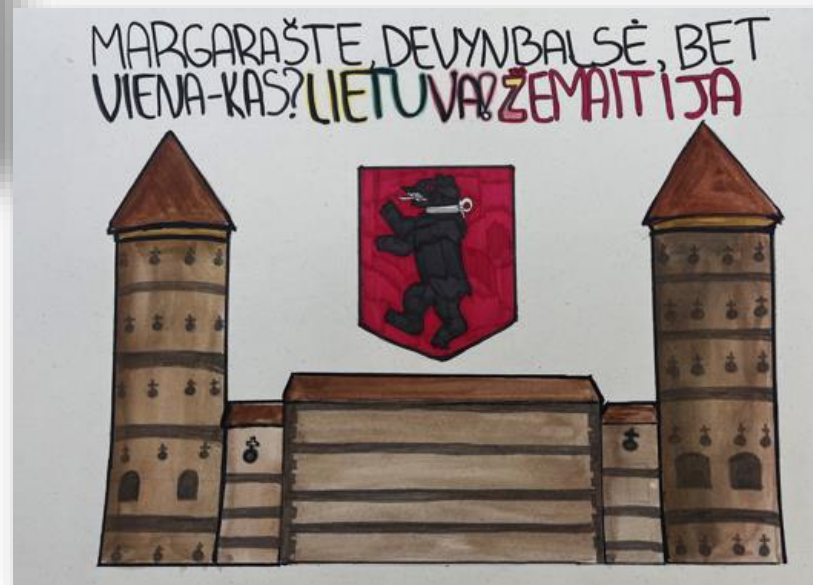 MARGARAŠTE, DEVYNBALSĖ, BET
VIENA-KAS? LIETUVA? ŽEMAITIJA